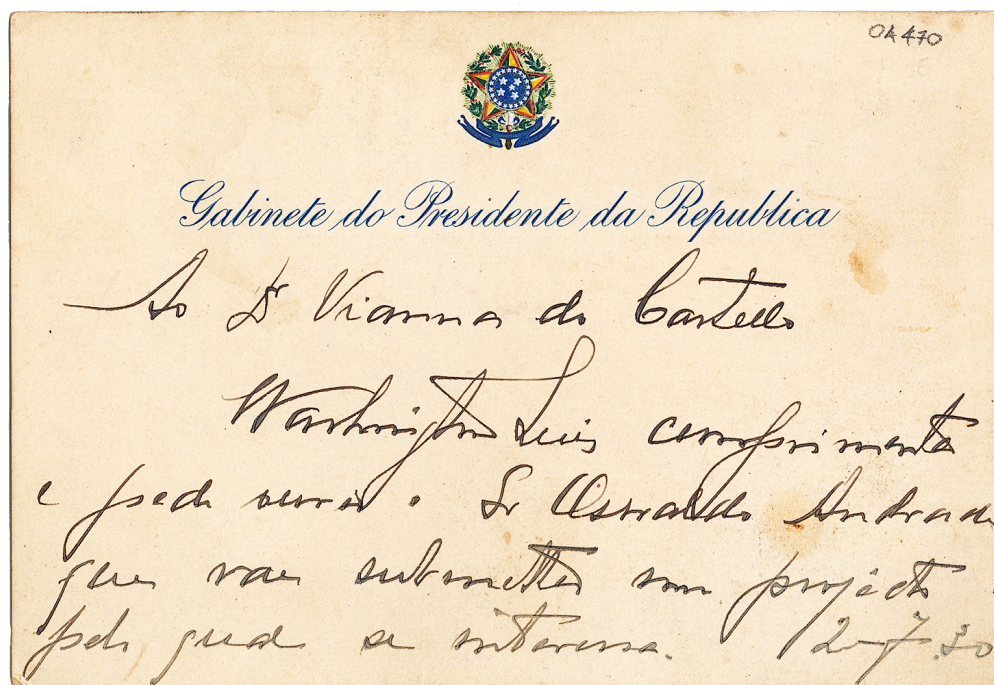 OA 470
Gabinete do Presidente da Republica
Ao Dr Vianna do Castello
Washington Luis cumprimenta
e pede ouvir o Sr Oswaldo Andrade
que vae submetter um projecto
pelo qual se interessa. 2-7-30